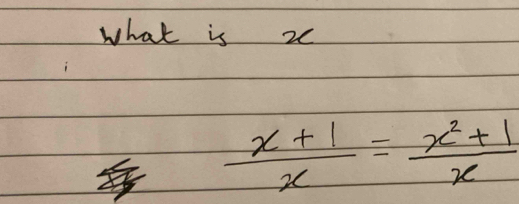 what is x
x + 1 / x = x² + 1 / x